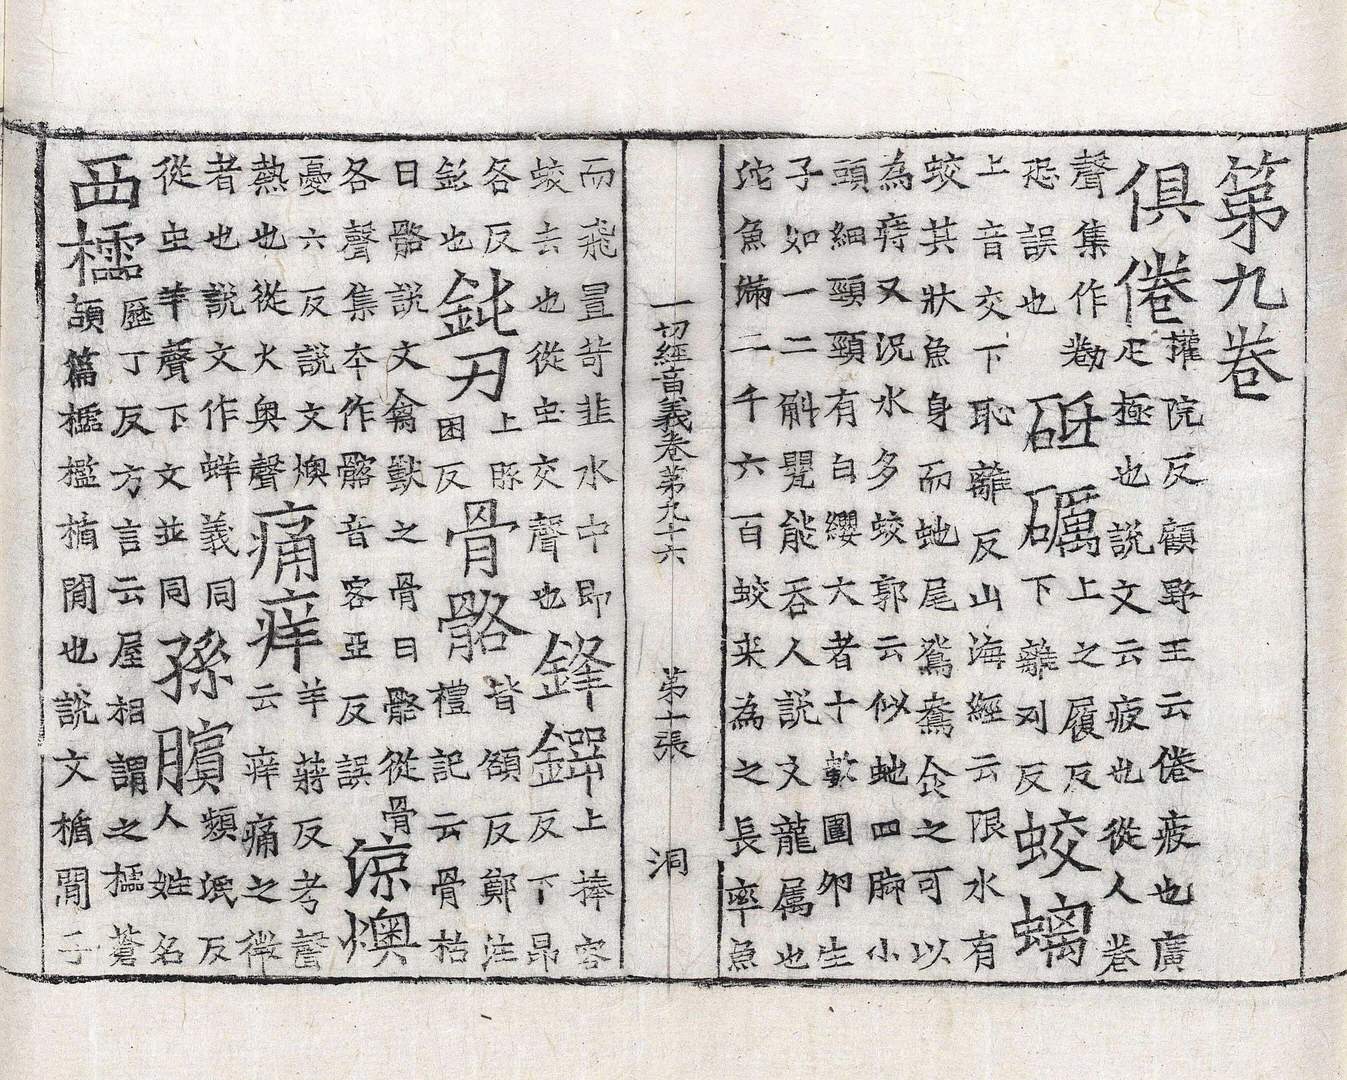 第九卷
俱倦權院反顧野王云倦疲也廣
疋極也說文云疲也從人卷
聲集作勌
恐誤也砥礪上之履反
下離刈反蛟螭
上音交下恥離反山海經云限水有
蛟其狀魚身而虵尾鴛鴦食之可以
為痔又況水多蛟郭云似虵四腳小
頭細頸頸有白纓大者十數圍卵生
子如一二斛甖能吞人說文龍属也
池魚滿二千六百蛟来為之長率魚
一切經音義卷第九十六 第十張 洞
而飛置笱韭水中即
蛟去也從虫交聲也鋒鍔上捧容
反下昂
各反
也鈍刃上豚
困反骨骼皆額反鄭注
禮記云骨枯
曰骼說文禽獸之骨曰骼從骨
各聲集本作髂音客亞反誤涼燠
憂六反說文燠
熱也從火奥聲痛痒羊蔣反考聲
云痒痛之微
者也說文作蛘義同
從虫羊聲下文並同孫臏頻泯反
人姓名
西櫺歷丁反方言云屋相謂之櫺蒼
頡篇櫺檻楯閒也說文楯閒子